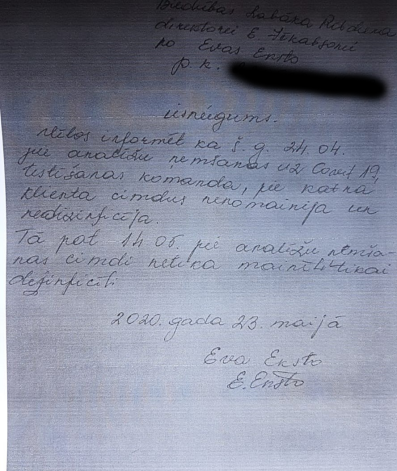 direktorei E. Jēkabsonei
no Evas Ensto
p. k.
iesniegums.
Vēlos informēt ka š. g. 24. 04.
pie analīžu ņemšanas uz Covid 19,
testēšanas komanda, pie katra
klienta cimdus nenomainīja un
nedizinficēja.
Tā pat 14 05. pie analīžu ņemša-
nas cimdi netika mainīti tikai
dezinficēti
2020. gada 23. maijā
Eva Ensto
E. Ensto